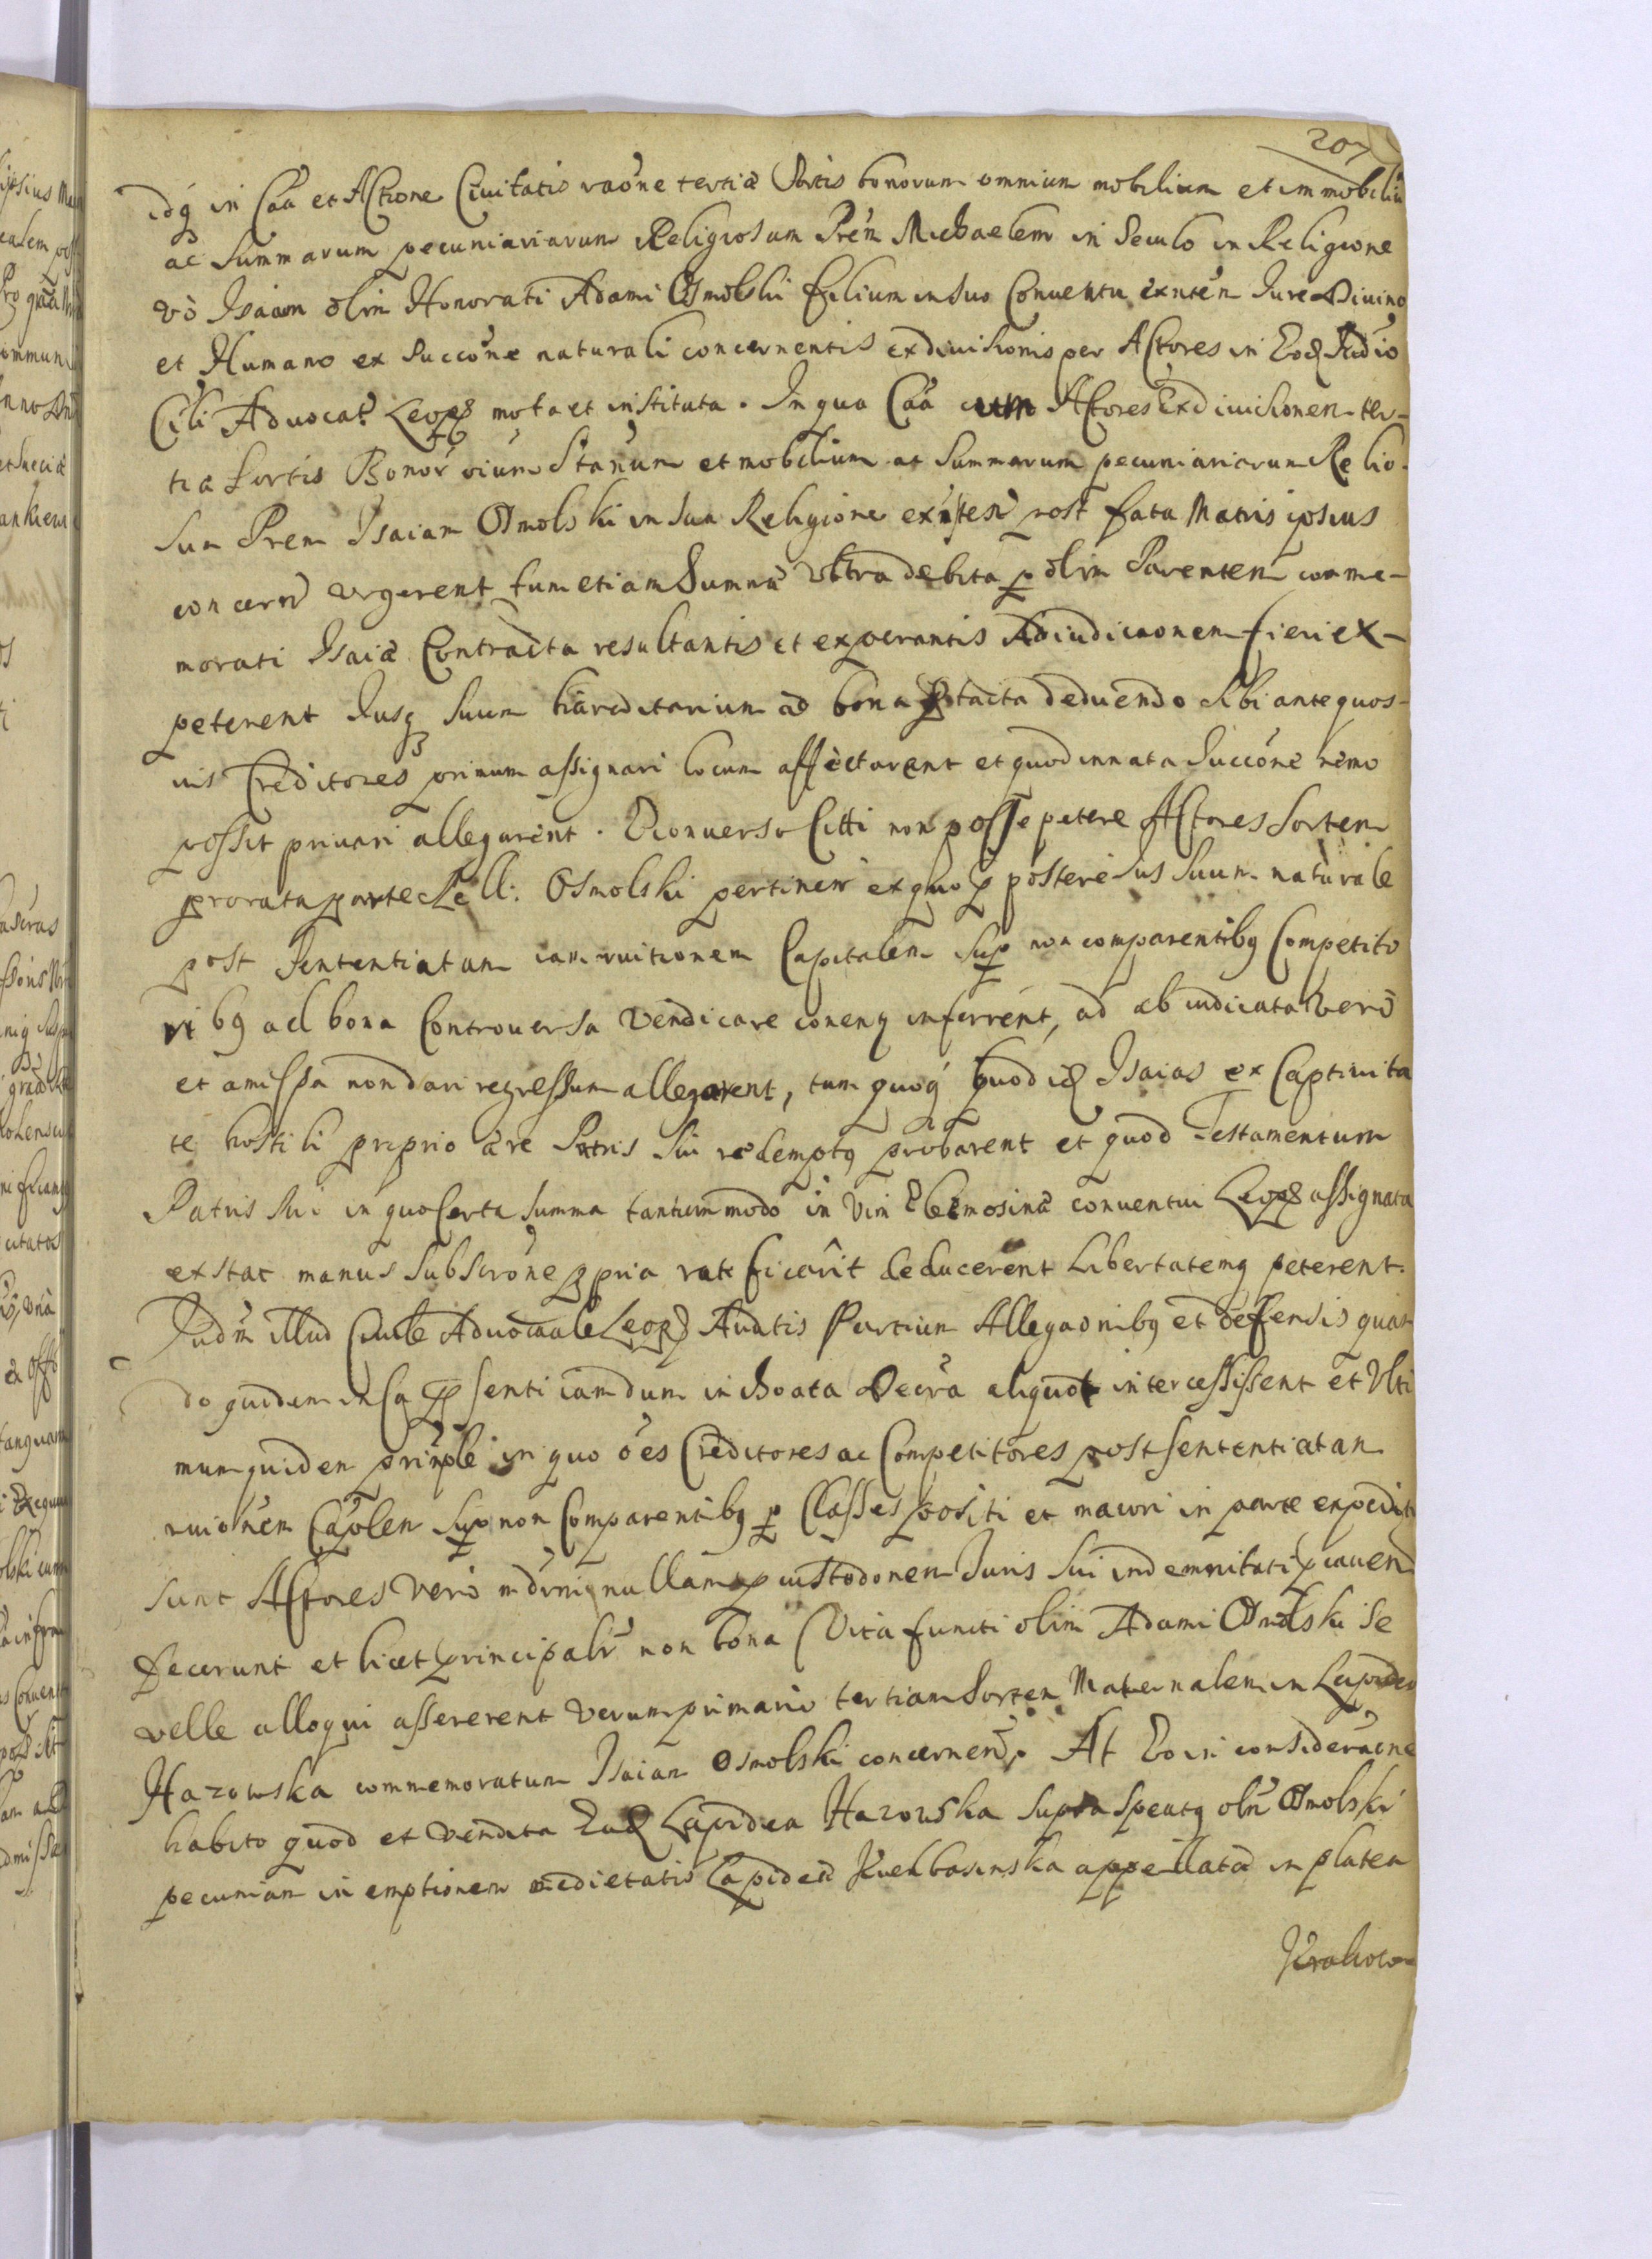 207
idq in Caa et Actione Civitatis raōne tertiæ Sortis bonorum omnium mobilium et immobiliū
ac Summarum pecuniariarum Religiosum Prēm Michaelem in Seculo in Religione
vō Isaiam olim Honorati Adami Osmolski filium in suo Conventu exntēn Iure Divino
et Humano ex Succōne naturali concernentis exdivisionis per Actores in Eod Iudio
Cili Advocat Leop mota et instituta. In qua Caa cum Actores Exdivisionem ter-
tiæ Sortis Bonor Stanūm et mobilium ac Summarum pecuniariarum Relio-
sum Prem Isaiam Osmolski in sua Religione existen post fata Matris ipsius
concern urgerent tum etiam Summæ ultra debita p olim Parentem comme-
morati Isaiæ Contracta resultantis et exuperantis Adiudicaonem fieri ex-
peterent Iusq suum hæreditarium ad bona ptacta deducendo sibi ante quos-
vis Creditores primum assignari locum affectarent et quod innata Succōne nemo
possit privari allegarent. Econverso Citti non posse petere Actores Sortem
pro rata parte Rell: Osmolski pertinen ex quo p postere Ius suum naturale
post Sententiatam iam ruitionem Capitalem Sup non comparentibq Competito
ribq ad bona Controversa vendicare conenq inferrent, ad abiudicata vero
et amissa non dari regressum allegarent, tum quoq quod id Isaias ex Captivita
te hostili proprio ære Patris sui redemptq probarent et quod Testamentum
Patris sui in quo Certa Summa tantummodo in vim Eleemosinæ conventui Leop assignata
exstat manus subscrōne ppria ratificarit deducerent Libertatemq peterent.
Iudm illud Civile Advocaale Leop Auditis Partium Allegaonibq et defensis quan
do quidem in Ca p senti iamdum inchoata Decra aliquot intercessissent et Ulti
mum quidem prinple in quo ōes Creditores ac Competitores post sententiatam
ruiōnem Capłem Sup non Comparentibq p Classes positi et maiori in parte expediti
sunt Actores vero nullam p custodonem Iuris sui indemnitati pcaven
fecerunt et licet principalr non bona Vita functi olim Adami Osmolski se
velle alloqui assererent verum primario tertiam Sortem Maternalem in Lapidea
Hazowska commemoratum Isaiam Osmolski concernen. At Eo in consideraōne
habito quod et vendita Ead Lapidea Hazowska supra spectq olm Osmolski
pecuniam in emptionem medietatis Lapideæ Kielbasinska appellatæ in platea
Krakow-